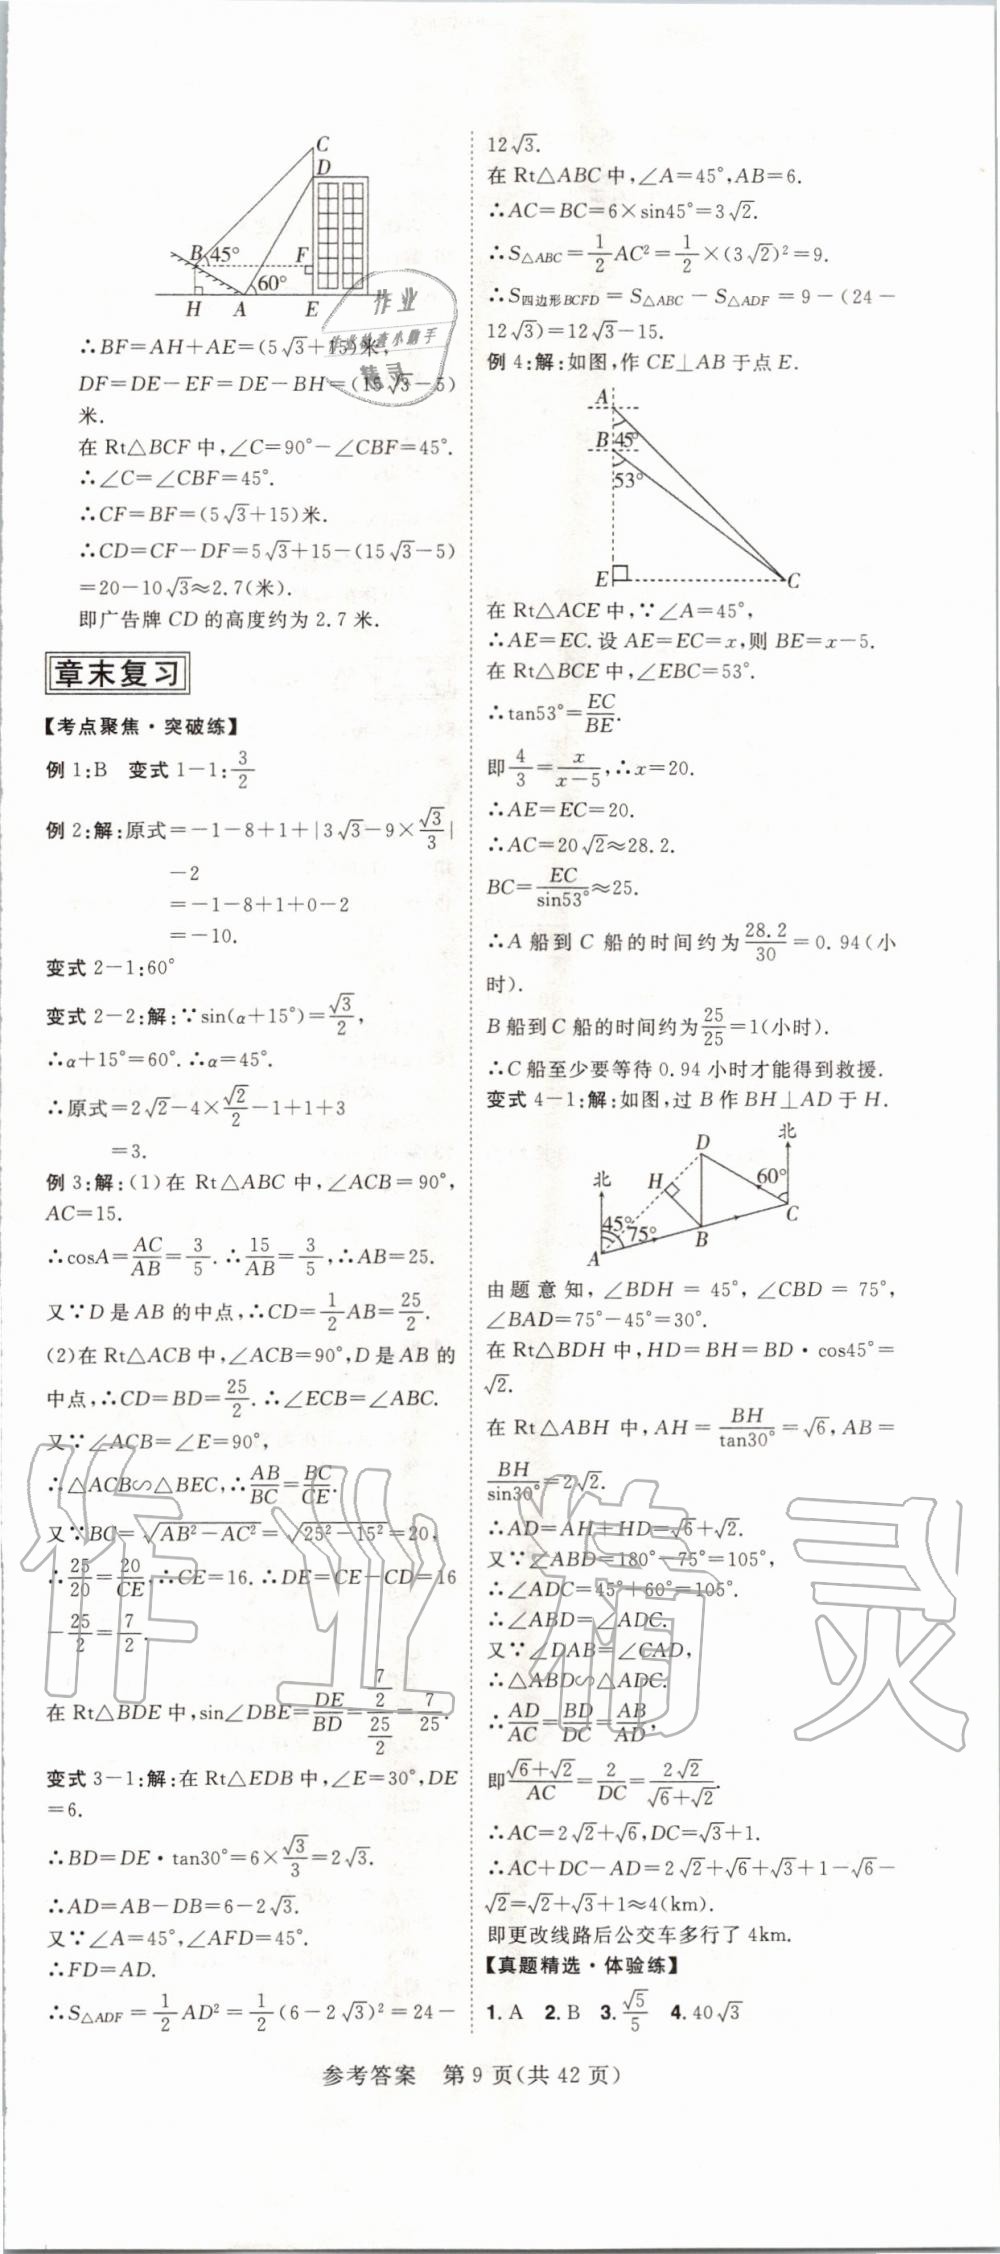 C
D
B 45° F
60°
H A E
∴BF=AH+AE=(5√3+15)米,
DF=DE-EF=DE-BH=(15√3-5)
米.
在 Rt△BCF 中,∠C=90°-∠CBF=45°.
∴∠C=∠CBF=45°.
∴CF=BF=(5√3+15)米.
∴CD=CF-DF=5√3+15-(15√3-5)
=20-10√3≈2.7(米).
即广告牌 CD 的高度约为 2.7 米.
章末复习
【考点聚焦·突破练】
例 1:B 变式 1-1:3/2
例 2:解:原式=-1-8+1+|3√3-9×√3/3|
-2
=-1-8+1+0-2
=-10.
变式 2-1:60°
变式 2-2:解:∵sin(α+15°)=√3/2,
∴α+15°=60°.∴α=45°.
∴原式=2√2-4×√2/2-1+1+3
=3.
例 3:解:(1)在 Rt△ABC 中,∠ACB=90°,
AC=15.
∴cosA=AC/AB=3/5.∴15/AB=3/5,∴AB=25.
又∵D 是 AB 的中点,∴CD=1/2AB=25/2.
(2)在 Rt△ACB 中,∠ACB=90°,D 是 AB 的
中点,∴CD=BD=25/2.∴∠ECB=∠ABC.
又∵∠ACB=∠E=90°,
∴△ACB∽△BEC,∴AB/BC=BC/CE.
又∵BC=√(AB²-AC²)=√(25²-15²)=20,
∴25/20=20/CE,∴CE=16.∴DE=CE-CD=16
-25/2=7/2.
在 Rt△BDE 中,sin∠DBE=DE/BD=(7/2)/(25/2)=7/25.
变式 3-1:解:在 Rt△EDB 中,∠E=30°,DE
=6.
∴BD=DE·tan30°=6×√3/3=2√3.
∴AD=AB-DB=6-2√3.
又∵∠A=45°,∠AFD=45°.
∴FD=AD.
∴S△ADF=1/2AD²=1/2(6-2√3)²=24-
12√3.
在 Rt△ABC 中,∠A=45°,AB=6.
∴AC=BC=6×sin45°=3√2.
∴S△ABC=1/2AC²=1/2×(3√2)²=9.
∴S四边形BCFD=S△ABC-S△ADF=9-(24-
12√3)=12√3-15.
例 4:解:如图,作 CE⊥AB 于点 E.
A
B 45°
53°
E C
在 Rt△ACE 中,∵∠A=45°,
∴AE=EC.设 AE=EC=x,则 BE=x-5.
在 Rt△BCE 中,∠EBC=53°.
∴tan53°=EC/BE.
即4/3=x/(x-5),∴x=20.
∴AE=EC=20.
∴AC=20√2≈28.2.
BC=EC/sin53°≈25.
∴A 船到 C 船的时间约为28.2/30=0.94(小
时).
B 船到 C 船的时间约为25/25=1(小时).
∴C 船至少要等待 0.94 小时才能得到救援.
变式 4-1:解:如图,过 B 作 BH⊥AD 于 H.
D 北
北 H 60°
45° 75° C
A B
由题意知,∠BDH=45°,∠CBD=75°,
∠BAD=75°-45°=30°.
在 Rt△BDH 中,HD=BH=BD·cos45°=
√2.
在 Rt△ABH 中,AH=BH/tan30°=√6,AB=
BH/sin30°=2√2.
∴AD=AH+HD=√6+√2.
又∵∠ABD=180°-75°=105°,
∴∠ADC=45°+60°=105°.
∴∠ABD=∠ADC.
又∵∠DAB=∠CAD,
∴△ABD∽△ADC.
∴AD/AC=BD/DC=AB/AD,
即(√6+√2)/AC=2/DC=2√2/(√6+√2).
∴AC=2√2+√6,DC=√3+1.
∴AC+DC-AD=2√2+√6+√3+1-√6-
√2=√2+√3+1≈4(km).
即更改线路后公交车多行了 4km.
【真题精选·体验练】
1. A 2. B 3. √5/5 4. 40√3
参考答案 第 9 页(共 42 页)
作业
作业检查小助手
精灵
作业精灵